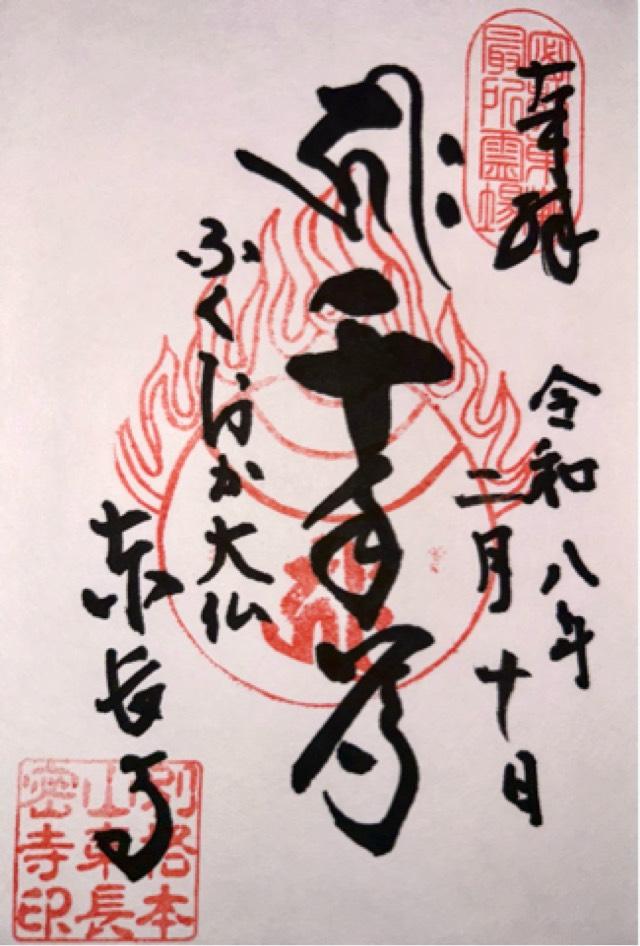 奉拝
最所霊場
令和八年
二月十日
𑖮𑖿𑖨𑖱𑖾
千手尊
ふくおか大仏
東長寺
別格本
山東長
密寺印